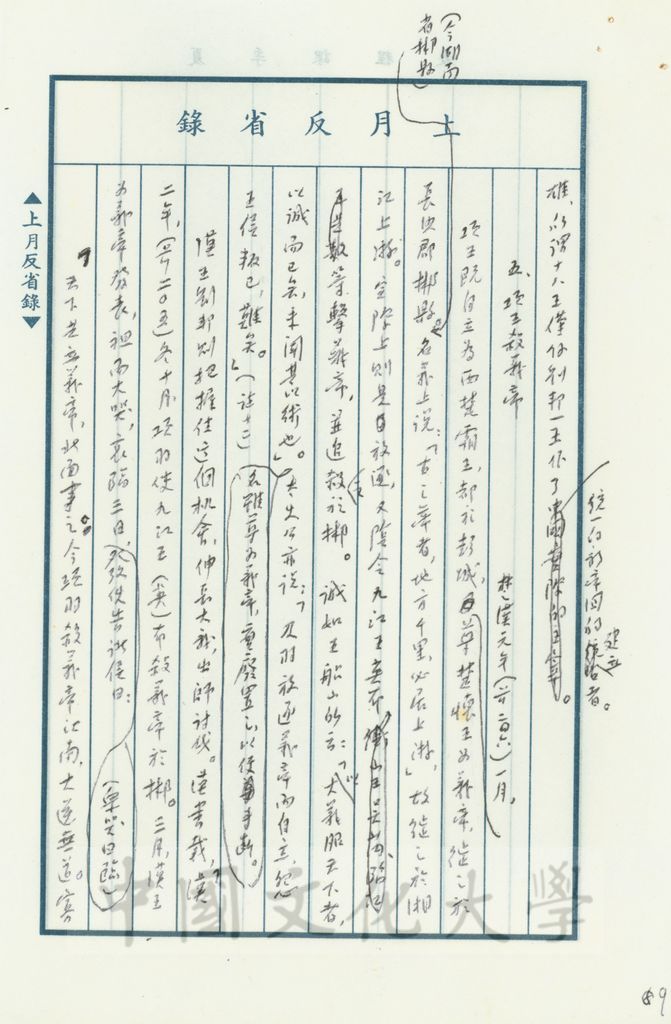 上月反省錄
(今湖南
省郴縣)
雄，所謂十八王僅有劉邦一王作了
統一的新帝國的建立者。
五、項王殺義帝
楚漢元年(前二〇六)一月，
項王既自立為西楚霸王，都於彭城，尊楚懷王為義帝，徙之於
長沙郡郴縣。名義上說：「古之帝者，地方千里，必居上游」，故徙之於湘
江上游。實際上則是放逐，又陰令九江王英布
等擊義帝，並追殺於郴。誠如王船山所云：「以大義服天下者，
以誠而已矣，未聞其以術也。」太史公亦說：「及羽放逐義帝而自立，怨
王侯叛己，難矣。」(註廿三)名雖尊為義帝，實廢置之以便下手斷。
漢王劉邦則把握住這個機會，伸張大義，出師討伐。漢書載，「漢
二年，(前二〇五)冬十月，項羽使九江王(英)布殺義帝於郴。三月，漢王
為義帝發喪，袒而大哭，哀臨三日，發使告諸侯曰：
(眾哭曰臨)
「天下共立義帝，北面事之。今項羽殺義帝江南，大逆無道。寡
▲上月反省錄▼
中國文化大學
89